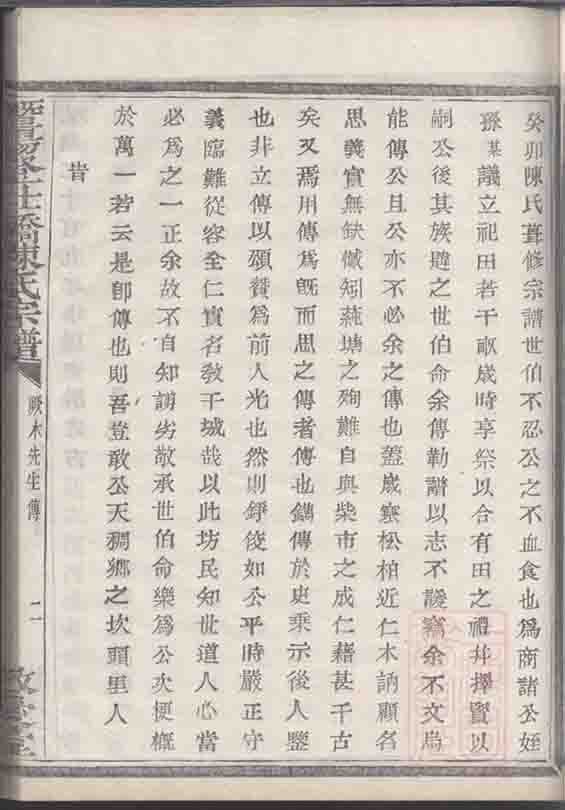 癸卯陳氏葺修宗譜世伯不忍公之不血食也為商諸公姪
孫某議立祀田若干畝歲時享祭以合有田之禮并擇賢以
嗣公後其族韙之世伯命余傳勒譜以志不諼竊余不文烏
能傳公且公亦不必余之傳也蓋歲寒松柏近仁木訥顧名
思義實無缺憾矧蒓塘之殉難自與柴市之成仁藉甚千古
矣又焉用傳為既而思之傳者傳也鐫傳於史乘示後人鑒
也非立傳以頌贊為前人光也然則錚佼如公平時嚴正守
義臨難從容全仁實名教干城哉以此坊民知世道人心當
必為之一正余故不自知謭劣敬承世伯命樂為公次梗概
於萬一若云是即傳也則吾豈敢公天稠鄉之坎頭里人
旹
暨陽 橋陳氏宗譜
木先生傳
二